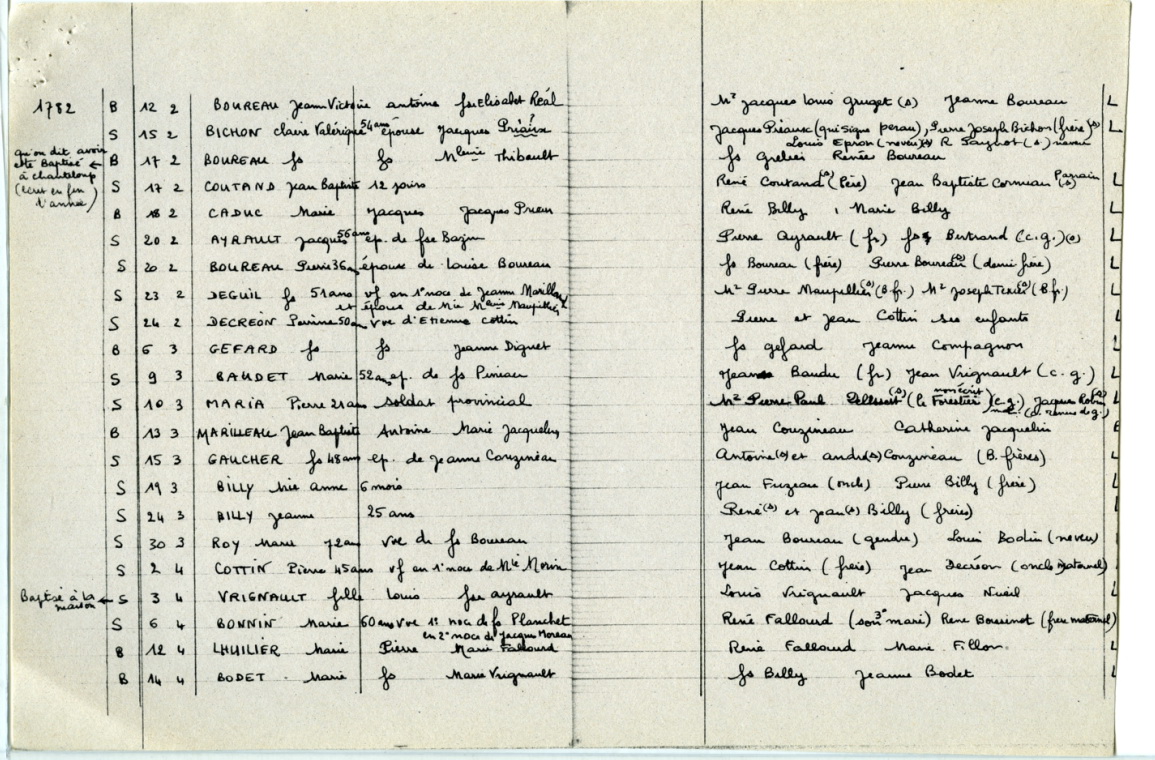 1782 B 12 2 BOUREAU Jeann Victoire antoine fse Elisabet Réal Mr Jacques Louis Gruget (s) Jeanne Boureau L
S 15 2 BICHON Claire Valérique 54 ans épouse Jacques Priaux ? Jacques Préaux (qui signe perau), Pierre Joseph Bichon (frère)(s) L
Louis Epron (neveu)(s) R (s) neveu
qu'on dit avoir été Baptisé à chanteloup (écrit en fin d'année) ← B 17 2 BOUREAU fs fs Mlenie Thibault fs Grelier Renée Boureau
S 17 2 COUTAND Jean Baptiste 12 jours René Coutand (s) (Père) Jean Baptiste Cormeau Parrain (s) L
B 18 2 CADUC Marie Jacques Jacques Prieur René Billy , Marie Billy L
S 20 2 AYRAULT Jacques 56 ans ép. de fse Bazin Pierre Ayrault (fr) fs Bertrand (c.g.) (s) L
S 20 2 BOUREAU Pierre 36 an épouse de Louise Boureau fs Boureau (frère) Pierre Boureau (s) (demi frère) L
S 23 2 DEGUIL fs 51 ans vf en 1° noce de Jeanne Marillau Mr Pierre Maupellier (s) (B.fr.) Mr Joseph Texier (s) (B fr.) L
et épouse de Mie Mleine Maupellier
S 24 2 DECREON Perrine 50 an vve d'Etienne Cottin Pierre et Jean Cottin ses enfants L
B 6 3 GEFARD fs fs Jeanne Diguet fs gefard Jeanne Compagnon L
S 9 3 BAUDET Marie 52 an ep. de fs Pineau Jean Baudu (fr) Jean Vrignault (c.g.) L
S 10 3 MARIA Pierre 21 an soldat provincial Mr Pierre Paul (s) (le Forestier) non écrit (c.g.) Jacques Robin (s) L
B 13 3 MARILLEAU Jean Baptiste Antoine Marie Jacquelin Jean Couzineau Catherine Jacquelin
S 15 3 GAUCHER fs 48 ans ep. de Jeanne Couzineau Antoine (s) et andré (s) Couzineau (B. frères) L
S 19 3 BILLY Mie Anne 6 mois Jean Fuzeau (oncle) Pierre Billy (frère) L
S 24 3 BILLY Jeanne 25 ans René (s) et Jean (s) Billy (frères)
S 30 3 ROY Marie 72 an vve de fs Boureau Jean Boureau (gendre) Louis Bodin (neveu)
S 2 4 COTTIN Pierre 45 ans vf en 1° noce de Mie Morin Jean Cottin (frère) Jean Decréon (oncle maternel)
Baptisé à la maison ← S 3 4 VRIGNAULT fille Louis fse ayrault Louis Vrignault Jacques Nueil L
S 6 4 BONNIN Marie 60 ans vve 1° noce de fs Planchet René Falloud (son 3° mari) René Boussinot (frère maternel)
en 2° noce de Jacques Moreau
B 12 4 LHUILIER Marie Pierre Marie Falloud René Falloud Marie Fillon L
B 14 4 BODET Marie fs Marie Vrignault fs Billy Jeanne Bodet L